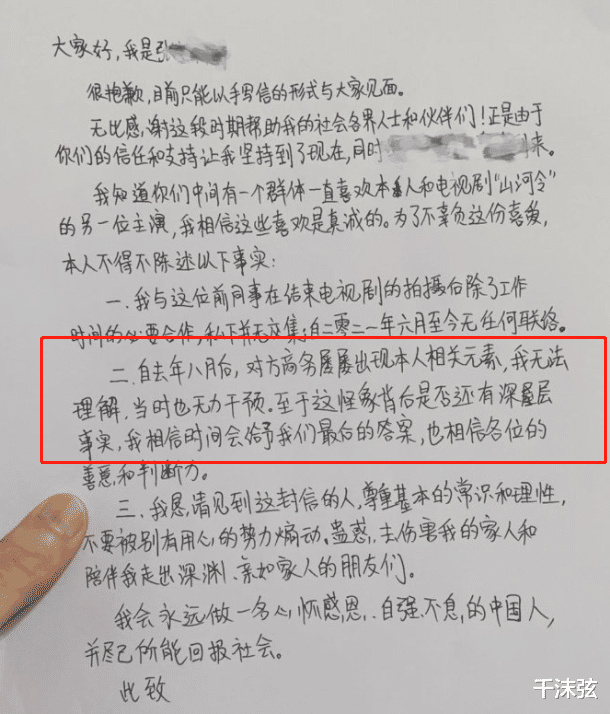 大家好,我是张
很抱歉,目前只能以手写信的形式与大家见面。
无比感谢这段时期帮助我的社会各界人士和伙伴们!正是由于
你们的信任和支持让我坚持到了现在,同时 来。
我知道你们中间有一个群体一直喜欢本人和电视剧“山河令”
的另一位主演,我相信这些喜欢是真诚的。为了不辜负这份喜爱,
本人不得不陈述以下事实:
一.我与这位前同事在结束电视剧的拍摄后除了工作
时间的必要合作,私下并无交集;自二零二一年六月至今无任何联络。
二.自去年八月后,对方商务屡屡出现本人相关元素,我无法
理解,当时也无力干预。至于这怪象背后是否还有深层
事实,我相信时间会给予我们最后的答案,也相信各位的
善意和判断力。
三.我恳请见到这封信的人,尊重基本的常识和理性,
不要被别有用心的势力煽动.蛊惑,去伤害我的家人和
陪伴我走出深渊、亲如家人的朋友们。
我会永远做一名心怀感恩、自强不息的中国人,
并尽己所能回报社会。
此致
千沫弦